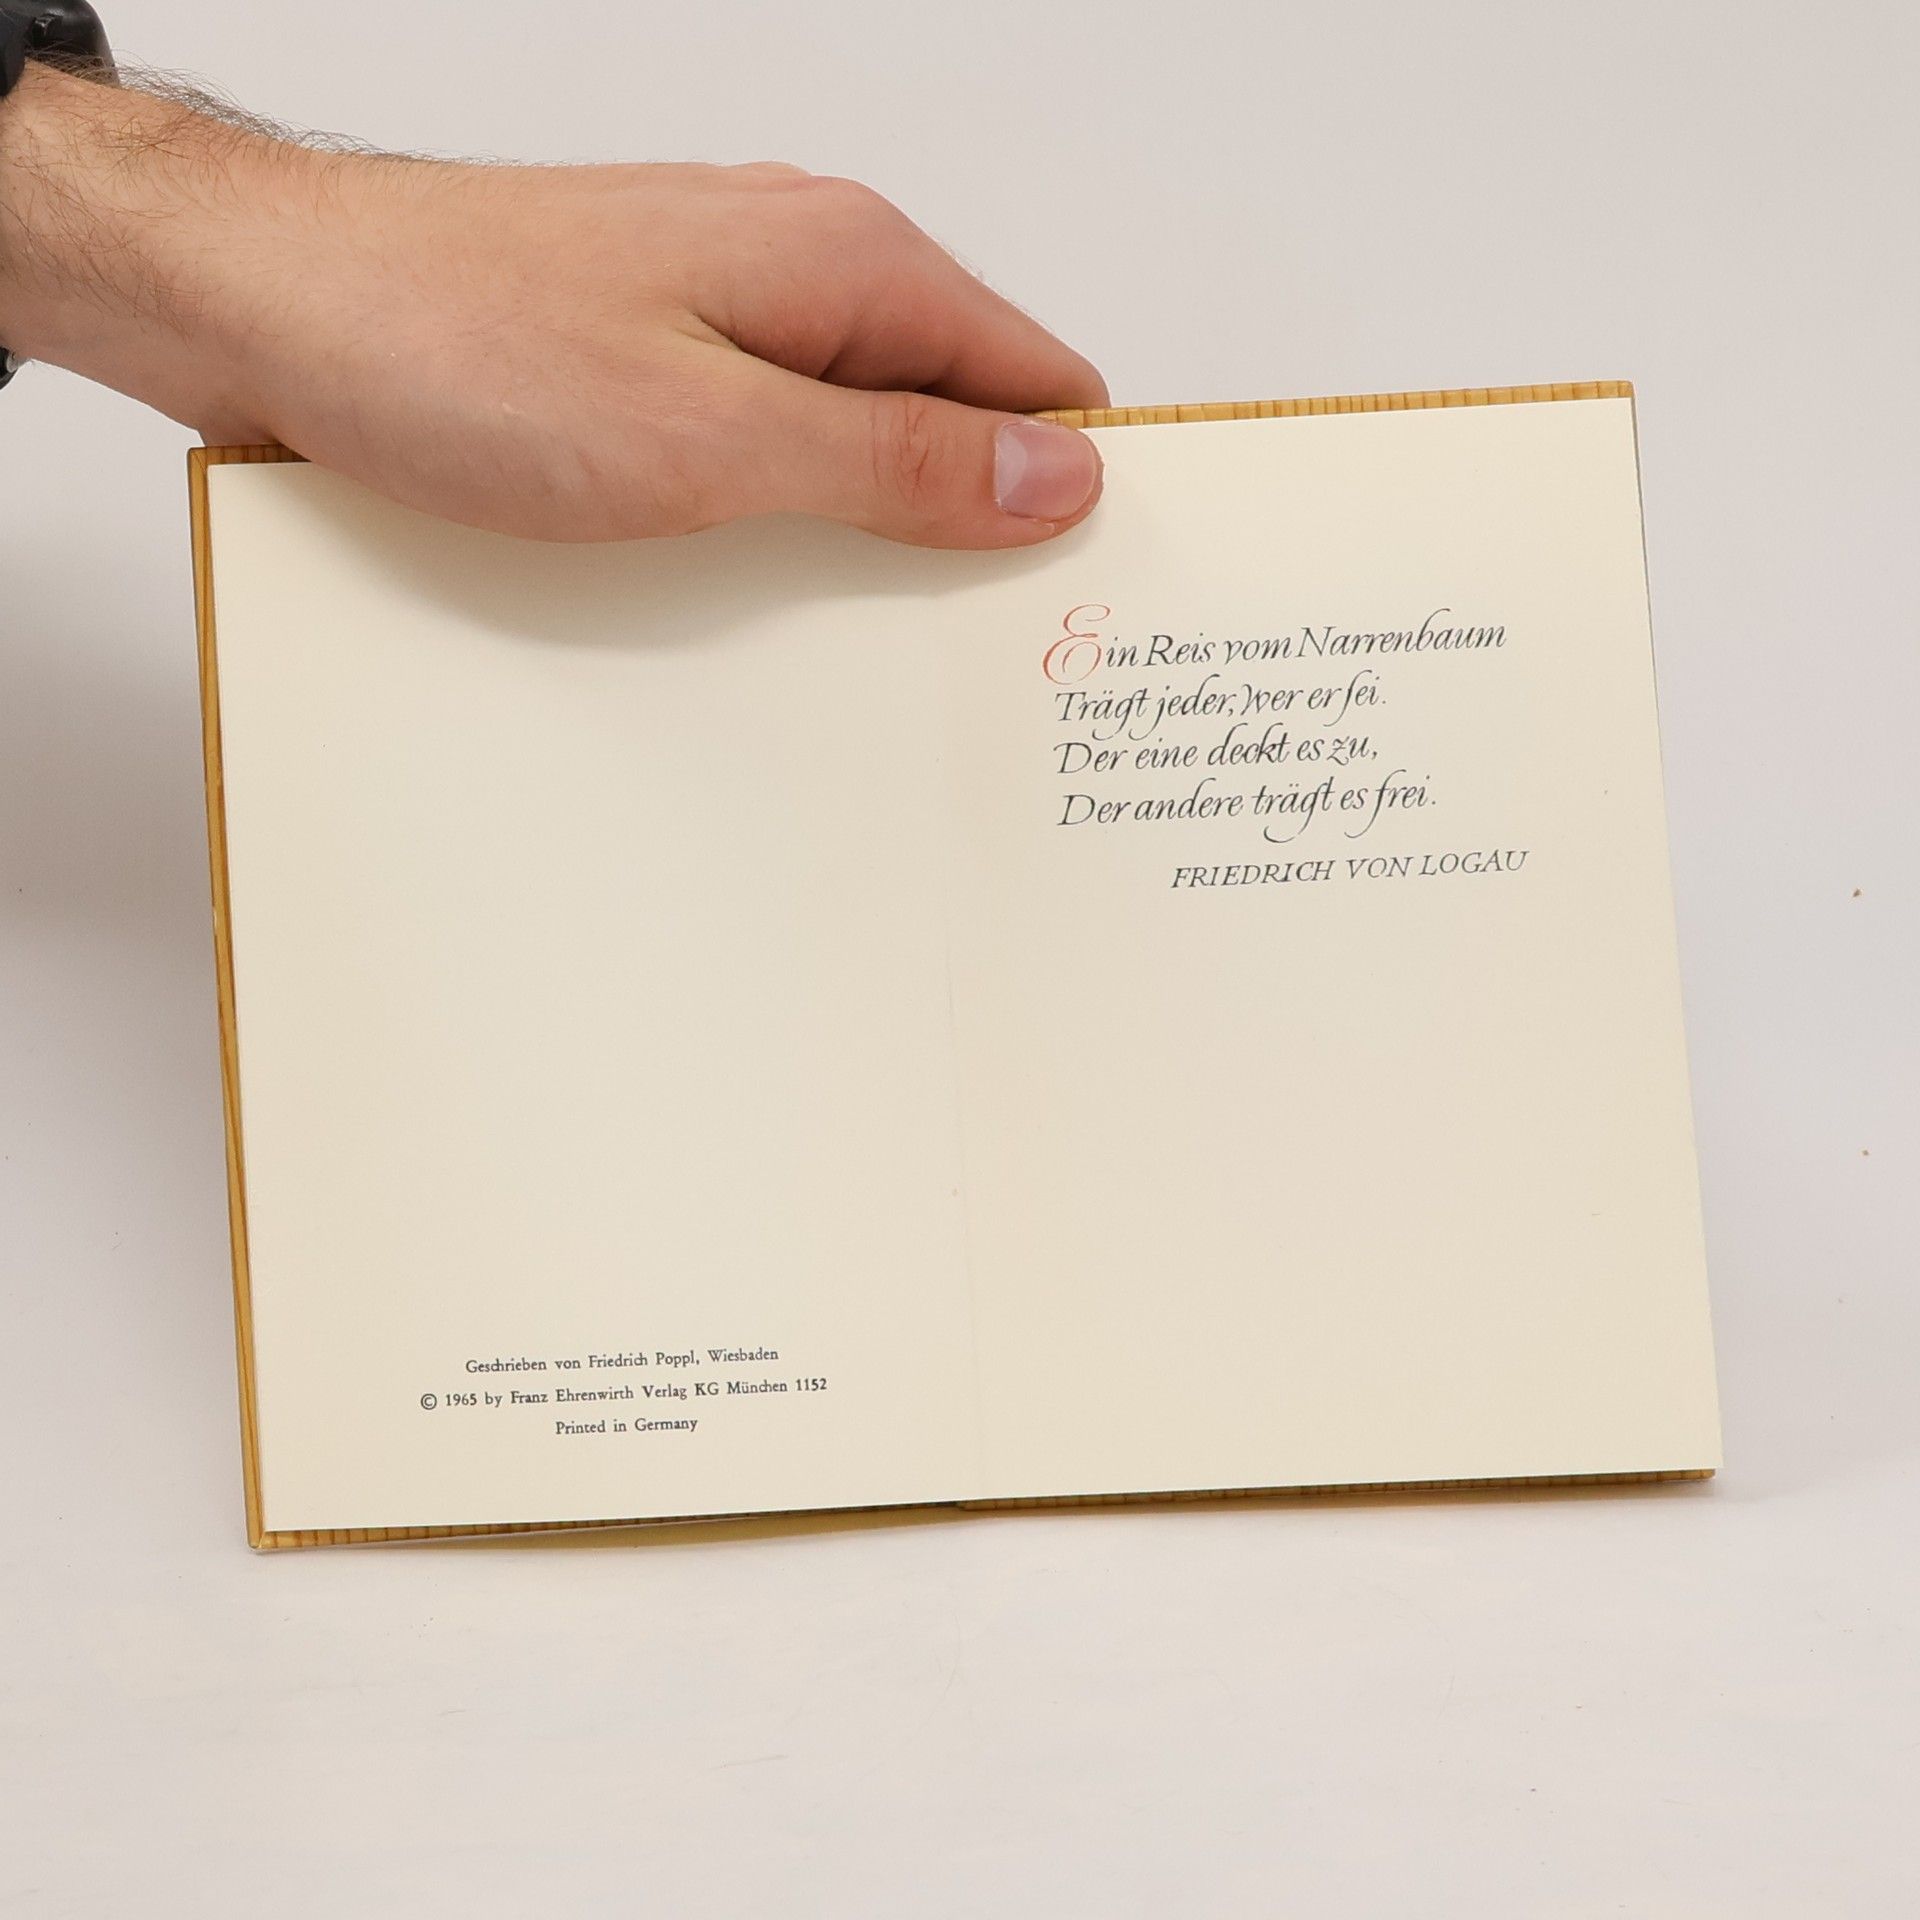 Geschrieben von Friedrich Poppl, Wiesbaden
© 1965 by Franz Ehrenwirth Verlag KG München 1152
Printed in Germany
Ein Reis vom Narrenbaum
Trägt jeder, wer er ſei.
Der eine deckt es zu,
Der andere trägt es frei.
FRIEDRICH VON LOGAU